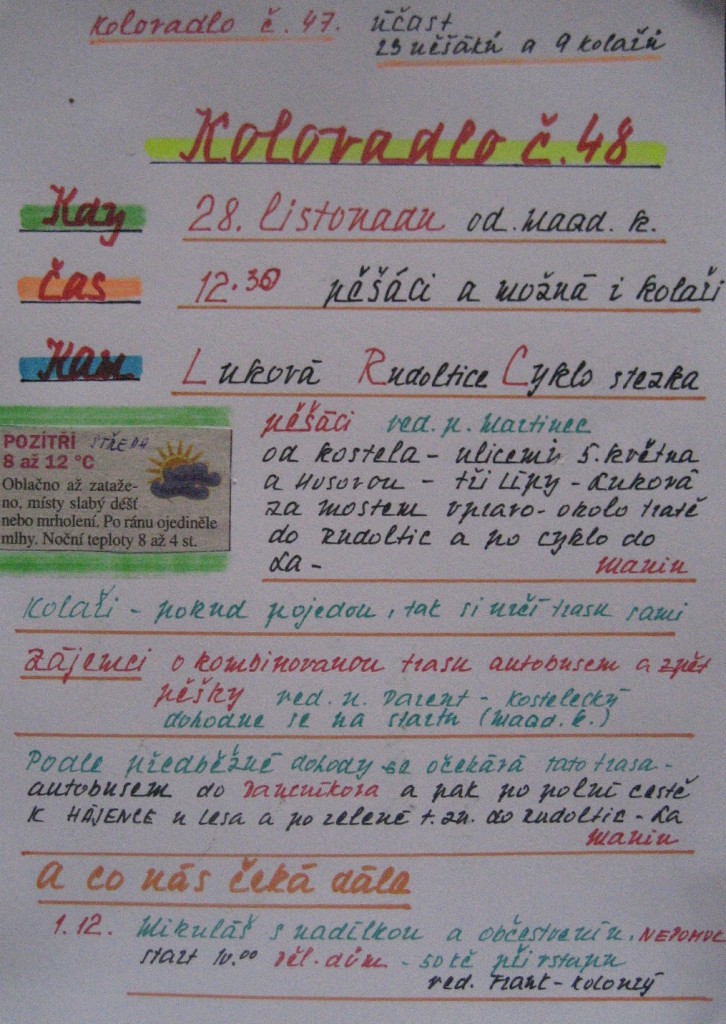 Koloradlo č. 47. účast
23 pěšáků a 9 kolařů
Koloradlo č. 48
Kdy 28. listopadu od. Magd. k.
Čas 12.30 pěšáci a možná i kolaři
Kam Luková Rudoltice Cyklo stezka
POZÍTŘÍ STŘEDA
8 až 12 °C
Oblačno až zataže-
no, místy slabý déšť
nebo mrholení. Po ránu ojediněle
mlhy. Noční teploty 8 až 4 st.
pěšáci ved. p. Martinec
od kostela - ulicemi 5. května
a Husovou - tři Lípy - Luková
za mostem vpravo - okolo tratě
do Rudoltic a po cyklo do
La - Manin
Kolaři - pokud pojedou, tak si určí trasu sami
Zájemci o kombinovanou trasu autobusem a zpět
pěšky ved. p. Parent - Kostelecký
dohodne se na startu (Magd. k.)
Podle předběžné dohody se očekává tato trasa -
autobusem do Damníkova a pak po polní cestě
K HÁJENCE u lesa a po zelené t. zn. do Rudoltic - La
Manin
A co nás čeká dále
1.12. Mikuláš s nadílkou a občerstvením. NEPOMUK
start 10.00 Děl. dům - 50 kč při vstupu
ved. Frant - Kolonzý